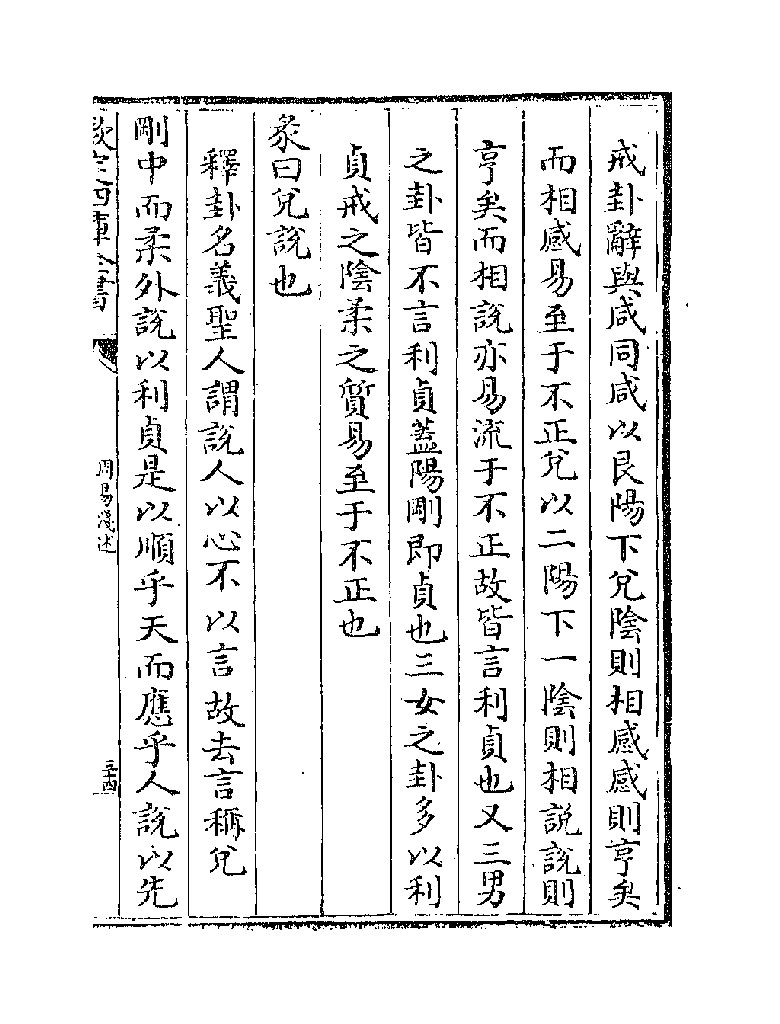 戒卦辭與咸同咸以艮陽下兌陰則相感感則亨矣
而相感易至于不正兌以二陽下一陰則相説説則
亨矣而相説亦易流于不正故皆言利貞也又三男
之卦皆不言利貞蓋陽剛即貞也三女之卦多以利
貞戒之陰柔之質易至于不正也
彖曰兌説也
釋卦名義聖人謂説人以心不以言故去言稱兌
剛中而柔外説以利貞是以順乎天而應乎人説以先
欽定四庫全書
周易淺述
五四